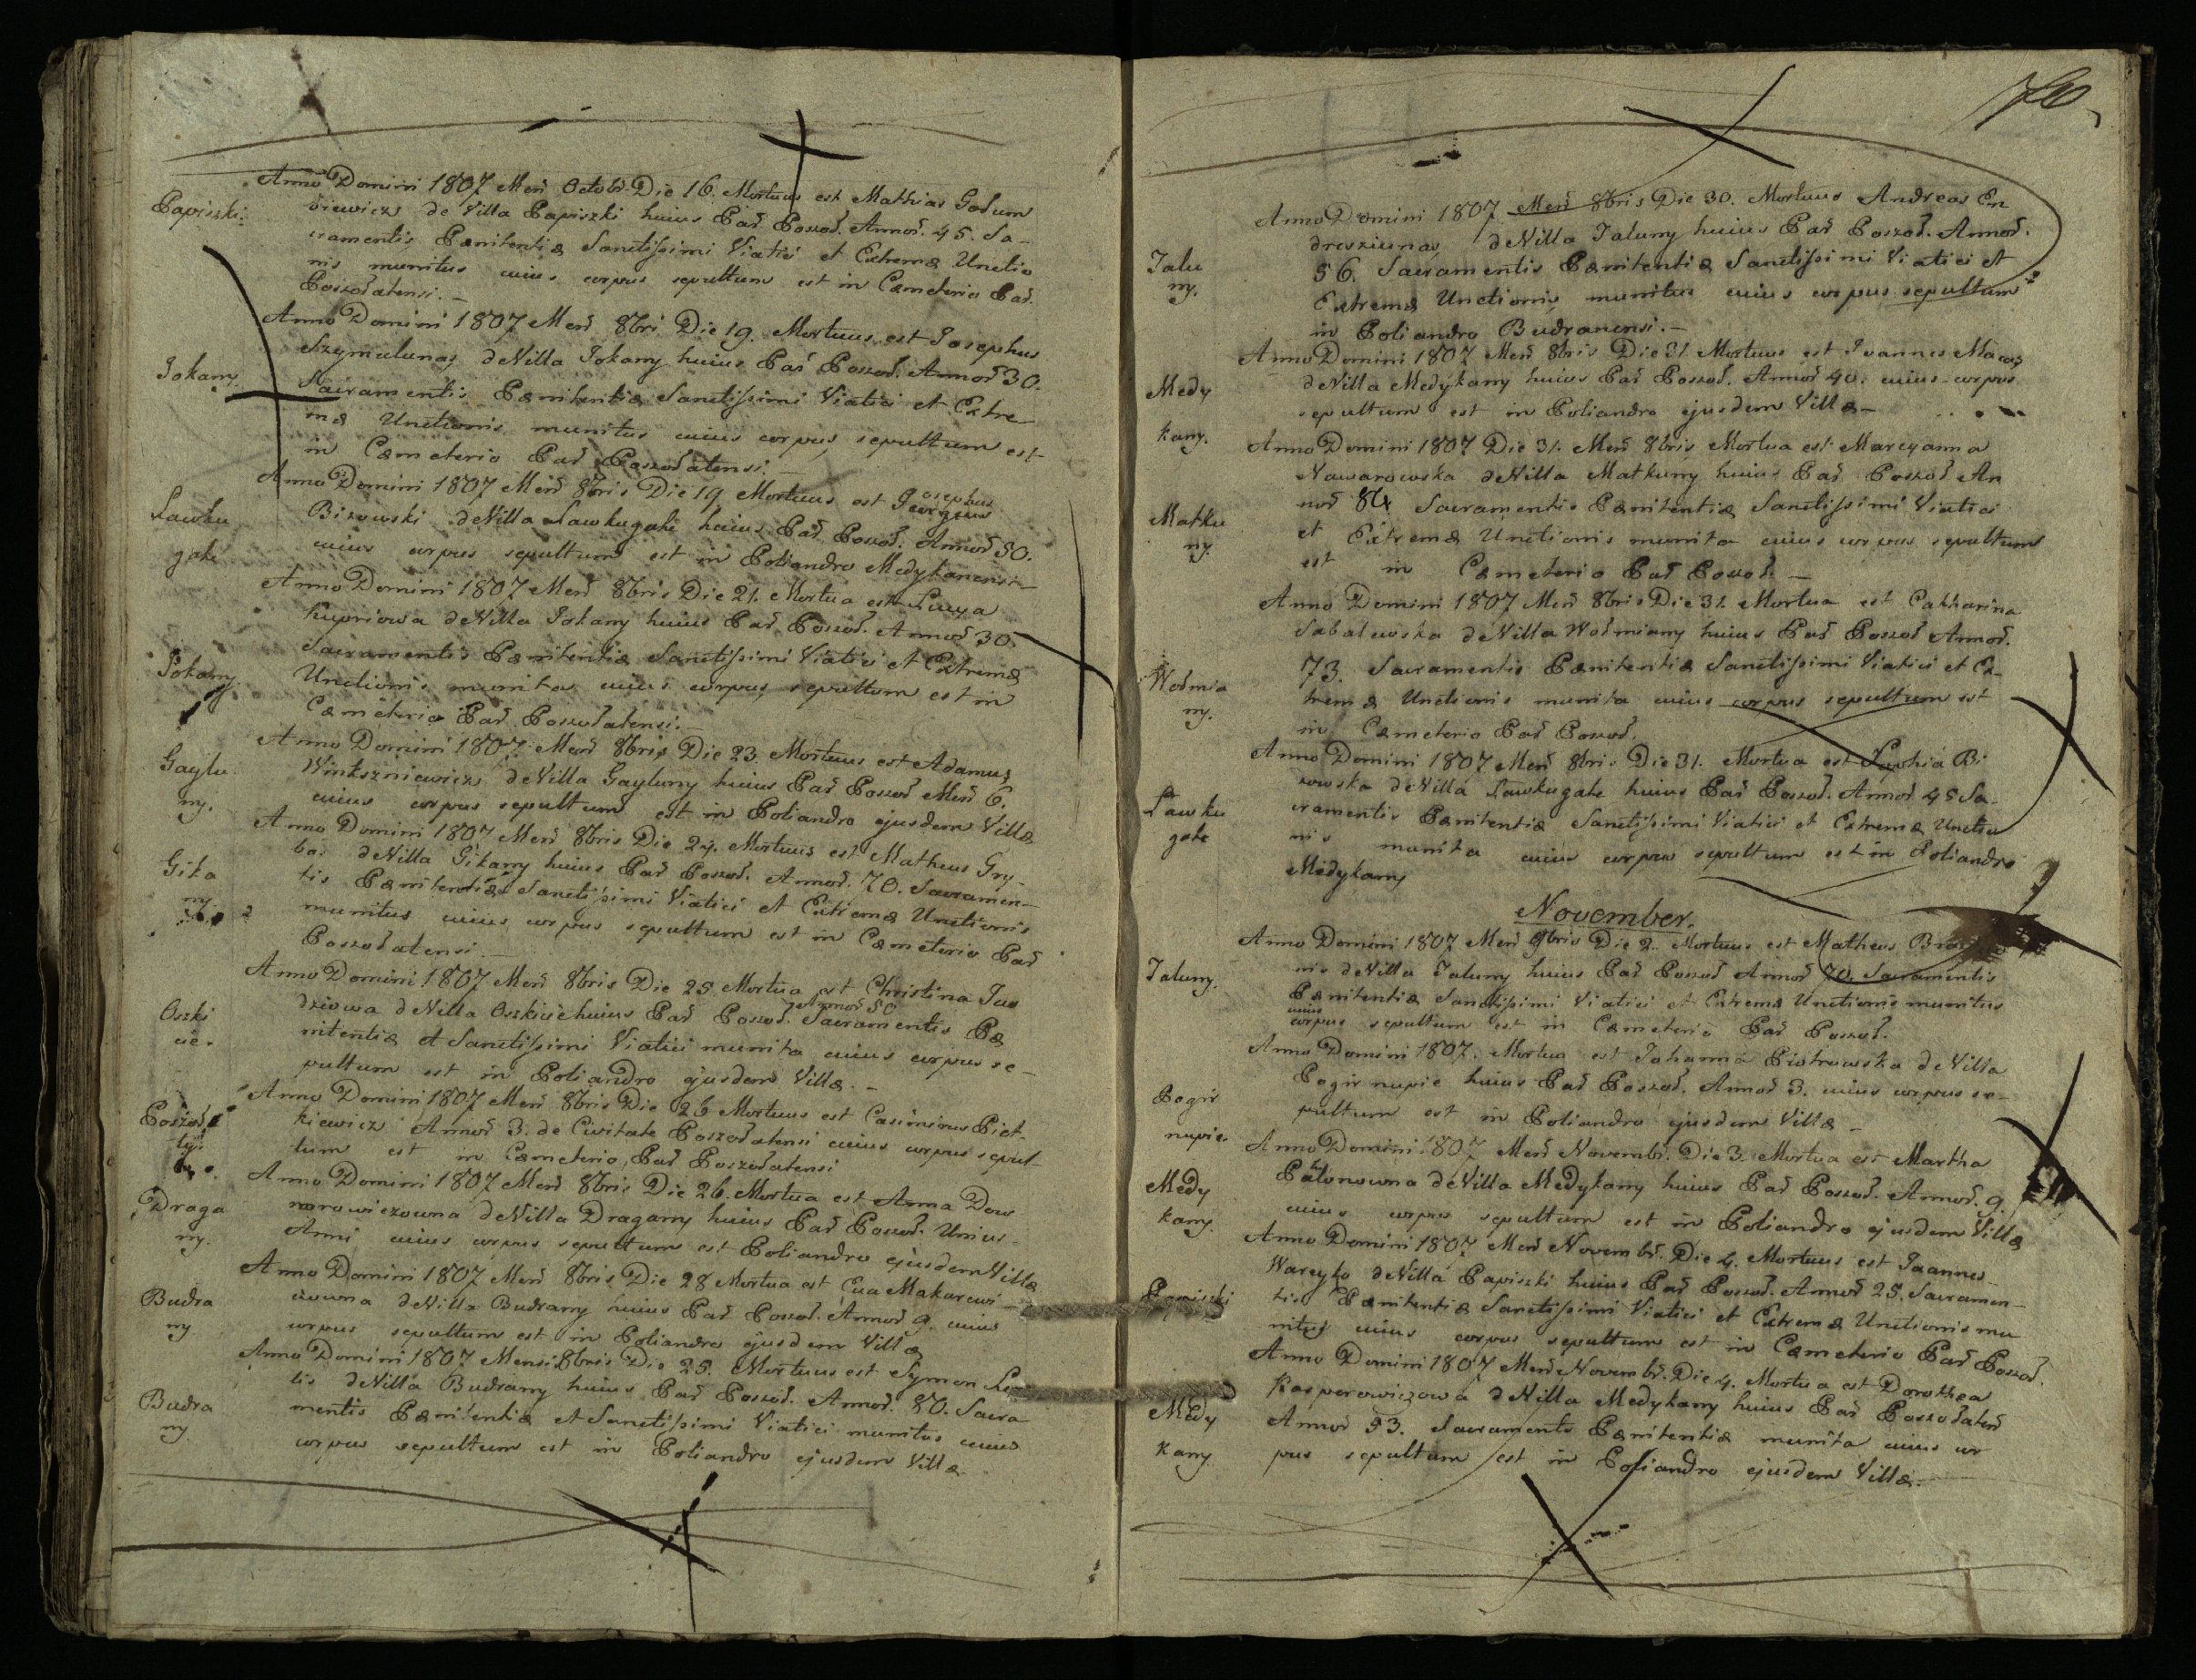 Papiszki.
Anno Domini 1807 Meñ Octobr. Die 16. Mortuus est Mathias Godum
biewicz de Villa Papiszki huius Par̃ Poszoł. Annor̃. 45. Sa-
cramentis Pænitentiæ Sanctissimi Viatici et Extremæ Unctio
nis munitus cuius corpus sepultum est in Cæmeterio Par̃.
Poszołatensi.-
Jokany.
Anno Domini 1807 Meñ 8bri Die 19. Mortuus est Josephus
Szymulunas de Villa Jokany huius Par̃ Poszoł. Annor̃ 30.
Sacramentis Pænitentiæ Sanctissimi Viatici et Extre
mæ Unctionis munitus cuius corpus sepultum est
in Cæmeterio Par̃ Poszołatensi.-
Ławku
gale
Anno Domini 1807 Meñ 8bris Die 19 Mortuus est Josephus
Bizowski de Villa Ławkugale huius Par̃ Poszoł. Annor̃ 50.
cuius corpus sepultum est in Poliandro Medykanensi-
Jokany.
Anno Domini 1807 Meñ 8bris Die 21. Mortua est Lucya
Kupriowa de Villa Jokany huius Par̃ Poszoł. Annor̃ 30.
Sacramentis Pænitentiæ Sanctissimi Viatici et Extremæ
Unctionis munita cuius corpus sepultum est in
Cæmeterio Par̃ Poszołatensi.-
Gaylu
ny.
Anno Domini 1807 Meñ 8bris Die 23. Mortuus est Adamus
Winkszniewicz de Villa Gayluny huius Par̃ Poszoł Meñ 6.
cuius corpus sepultum est in Poliandro ejusdem Villæ
Gika
ny.
Anno Domini 1807 Meñ 8bris Die 24. Mortuus est Matheus Gry-
bas de Villa Gikany huius Par̃ Poszoł. Annor̃. 70. Sacramen-
tis Pænitentiæ Sanctissimi Viatici et Extremæ Unctionis
munitus cuius corpus sepultum est in Cæmeterio Par̃
Poszołatensi.-
Oszki
cie.
Anno Domini 1807 Meñ 8bris Die 25 Mortua est Christina Juo
Annor̃ 50
dziowa de Villa Oszkiście huius Par̃ Poszoł. Sacramentis Pæ
nitentiæ et Sanctissimi Viatici munita cuius corpus se-
pultum est in Poliandro ejusdem Villæ.-
Poszoł
ty.
Anno Domini 1807 Meñ 8bris Die 26 Mortuus est Casimirus Piet-
kiewicz Annor̃ 3. de Civitate Poszołatensi cuius corpus sepul-
tum est in Cæmeterio Par̃ Poszołatensi
Draga
ny.
Anno Domini 1807 Meñ 8bris Die 26. Mortua est Anna Dow
norowiczowna de Villa Dragany huius Par̃ Poszoł. Unius
Anni cuius corpus sepultum est Poliandro ejusdem Villæ
Budra
ny
Anno Domini 1807 Meñ 8bris Die 28 Mortua est Eua Makarewi-
czowna de Villa Budrany huius Par̃ Poszoł. Annor̃ 9. cuius
corpus sepultum est in Poliandro ejusdem Villæ
Budra
ny.
Anno Domini 1807 Mensi 8bris Die 25. Mortuus est Symon
tis de Villa Budrany huius Par̃ Poszoł. Annor̃. 80. Sacra
mentis Pænitentiæ et Sanctissimi Viatici munitus cuius
corpus sepultum est in Poliandro ejusdem Villæ
Jalu
ny.
Anno Domini 1807 Meñ 8bris Die 30. Mortuus Andreas En
dresziunas de Villa Jaluny huius Par̃ Poszoł. Annor̃.
56. Sacramentis Pænitentiæ Sanctissimi Viatici et
Extremæ Unctionis munitus cuius corpus sepultum
in Poliandro Budranensi.-
Medy
kany.
Anno Domini 1807 Meñ 8bris Die 31 Mortuus est Joannes Macas
de Villa Medykany huius Par̃ Poszoł. Annor̃ 40. cuius corpus
sepultum est in Poliandro ejusdem Villæ-
Matku
ny.
Anno Domini 1807 Die 31. Meñ 8bris Mortua est Marcyanna
Nawarowska de Villa Matkuny huius Par̃ Poszoł An
nor̃ 84 Sacramentis Pænitentiæ Sanctissimi Viatici
et Extremæ Unctionis munita cuius corpus sepultum
est in Cæmeterio Par̃ Poszoł.-
Wołmia
ny.
Anno Domini 1807 Meñ 8bris Die 31. Mortua est Catharina
Sabalewska de Villa Wołmiany huius Par̃ Poszoł Annor̃.
73. Sacramentis Pænitentiæ Sanctissimi Viatici et Ex-
tremæ Unctionis munita cuius corpus sepultum est
in Cæmeterio Par̃ Poszoł.
Ławku
gale
Anno Domini 1807 Meñ 8bris Die 31. Mortua est Sophia Bi
zowska de Villa Ławkugale huius Par̃ Poszoł. Annor̃ 45 Sa-
cramentis Pænitentiæ Sanctissimi Viatici et Extremæ Unctio
nis munita cuius corpus sepultum est in Poliandro
Medykany
November.
Jaluny.
Anno Domini 1807 Meñ 9bris Die 2. Mortuus est Matheus
nis de Villa Jaluny huius Par̃ Poszoł Annor̃ 70. Sacramentis
Pænitentiæ Sanctissimi Viatici et Extremæ Unctionis munitus
cuius
corpus sepultum est in Cæmeterio Par̃ Poszoł.
Pogir
nupie.
Anno Domini 1807. Mortua est Johanna Piotrowska de Villa
Pogirnupie huius Par̃ Poszoł. Annor̃ 3. cuius corpus se-
pultum est in Poliandro ejusdem Villæ-
Medy
kany.
Anno Domini 1807 Meñ Novembr̃. Die 3. Mortua est Martha
Pałonowna de Villa Medykany huius Par̃ Poszoł. Annor̃. 9.
cuius corpus sepultum est in Poliandro ejusdem Villæ
Papiszki
Anno Domini 1807 Meñ Novembr̃. Die 4. Mortuus est Joannes
Wareyko de Villa Papiszki huius Par̃ Poszoł. Annor̃ 25. Sacramen-
tis Pænitentiæ Sanctissimi Viatici et Extremæ Unctionis mu
nitus cuius corpus sepultum est in Cæmeterio Par̃ Poszoł.
Medy
kany
Anno Domini 1807 Meñ Novembr̃. Die 4. Mortua est Dorothea
Kasperowiczowa de Villa Medykany huius Par̃ Poszołateñ
Annor̃ 53. Sacramento Pænitentiæ munita cuius cor
pus sepultum est in Poliandro ejusdem Villæ.-